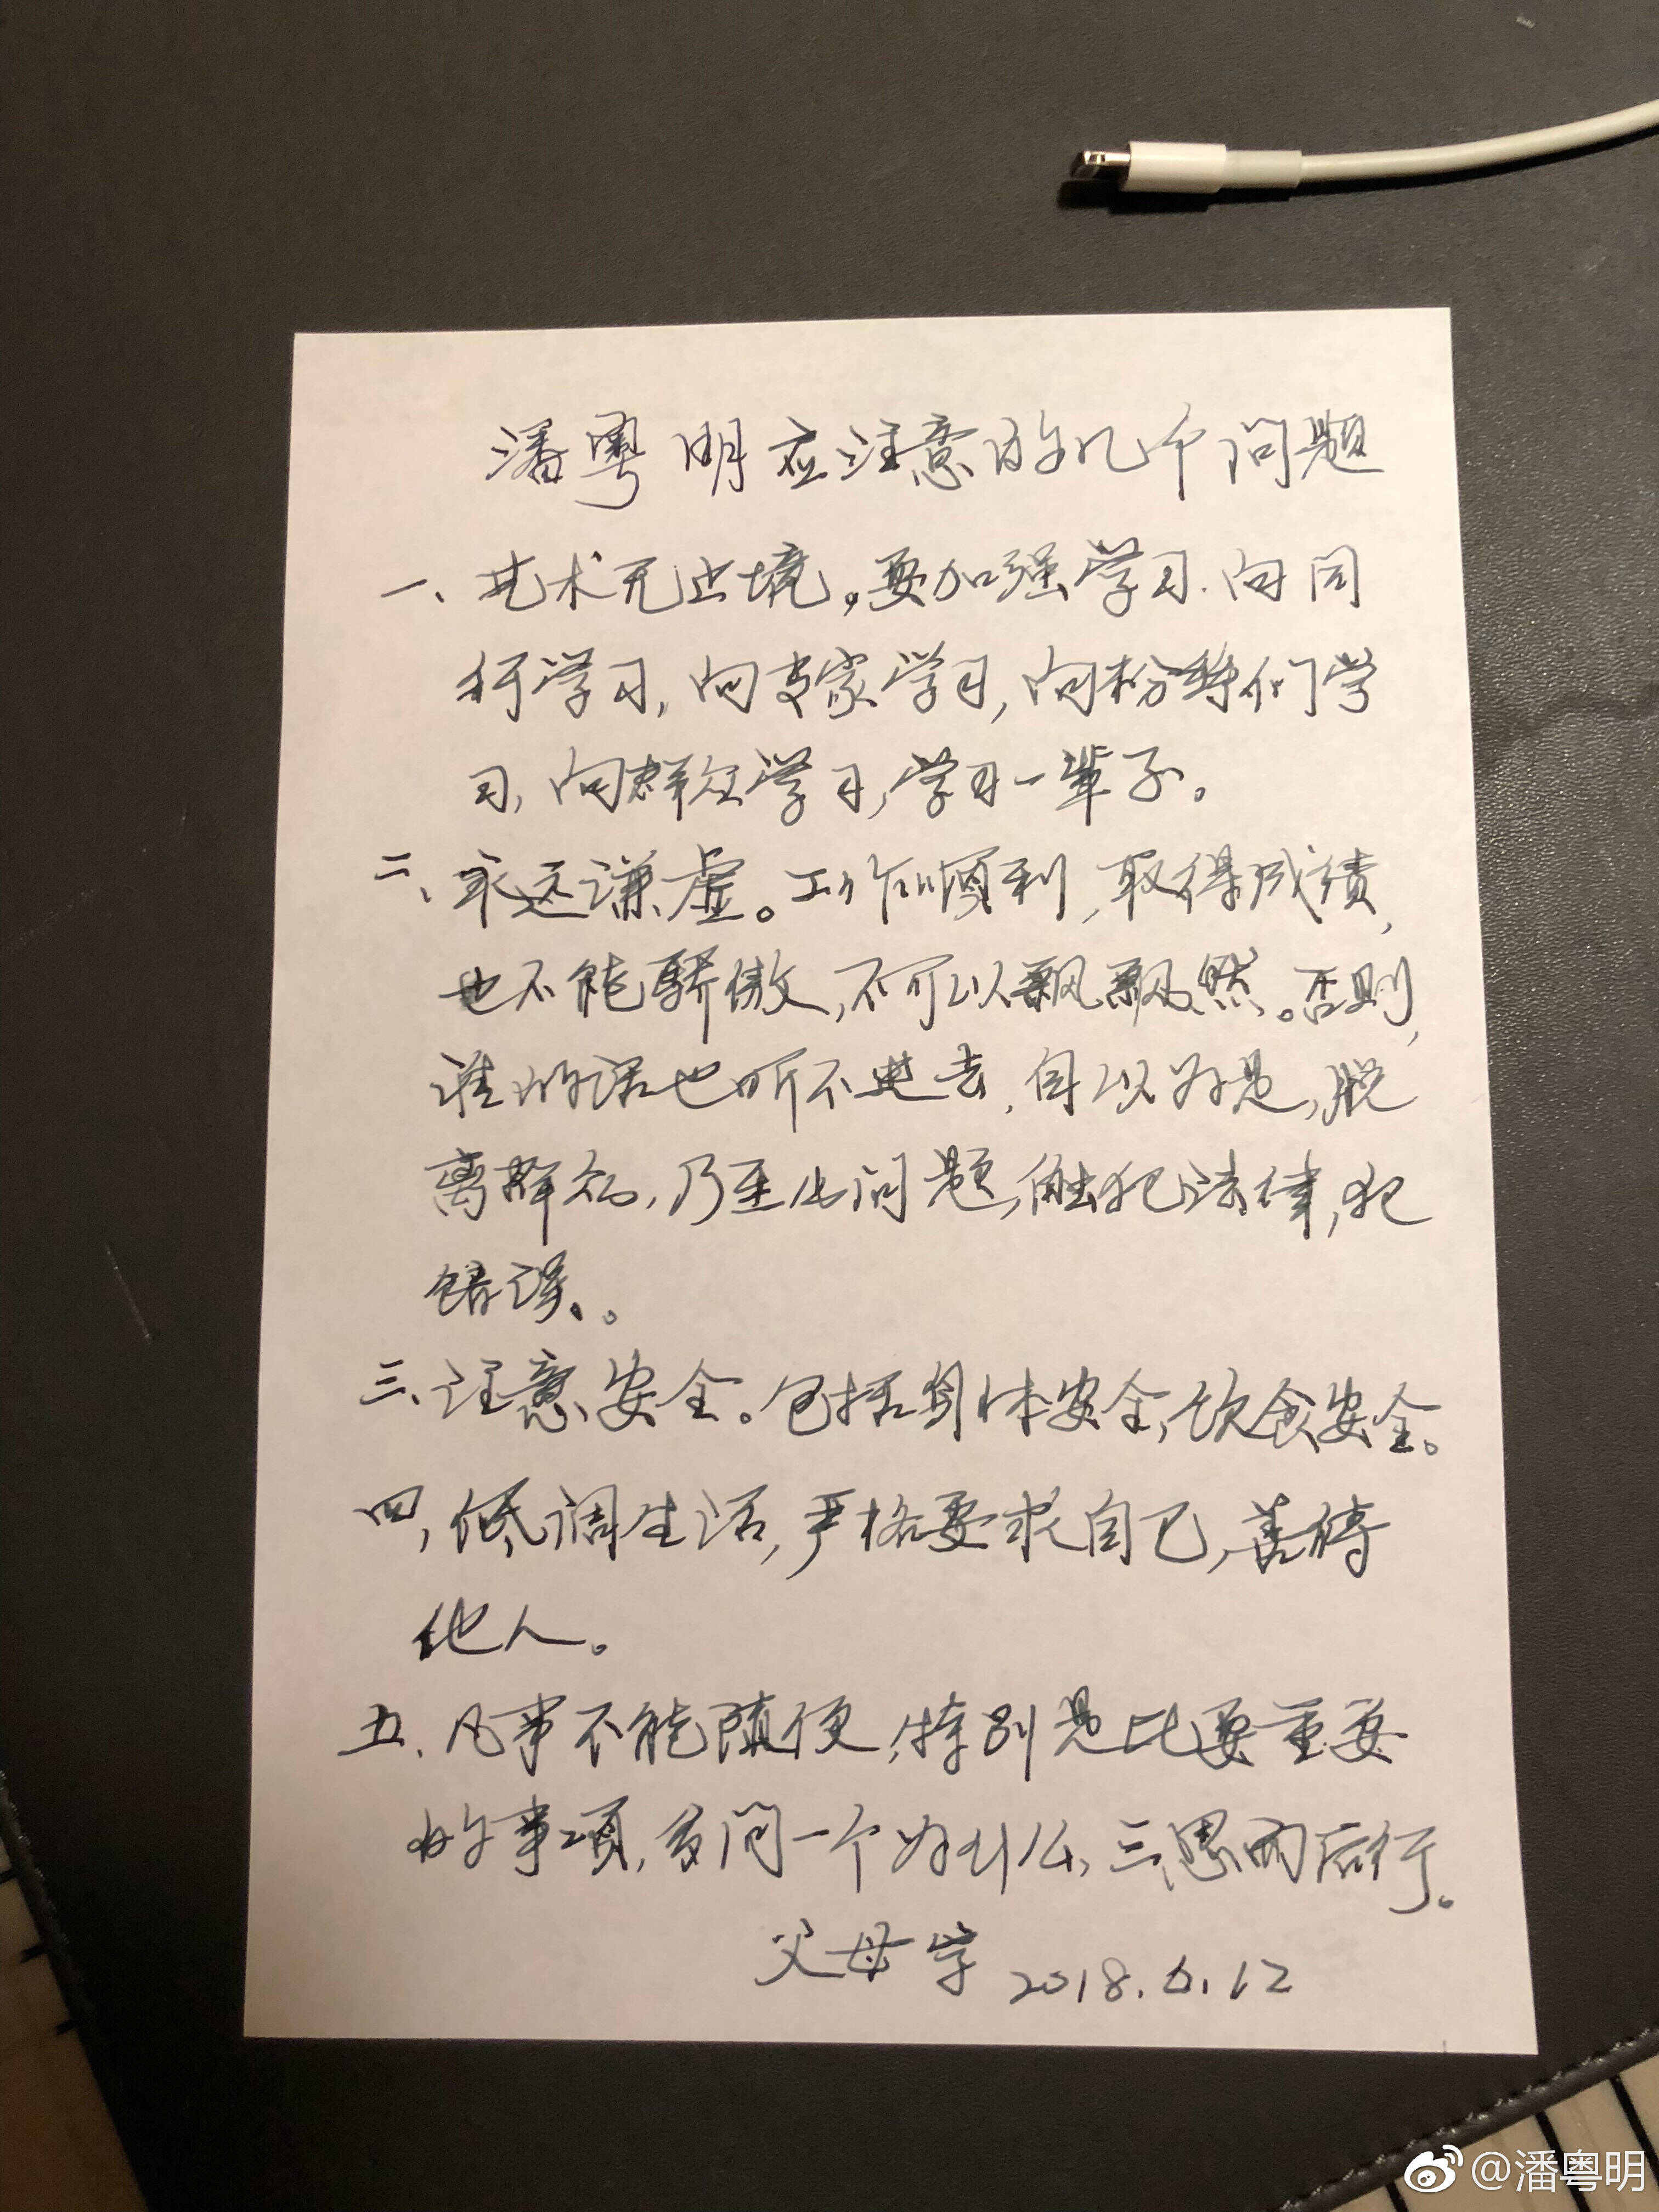 潘粤明应注意的几个问题
一、艺术无止境。要加强学习.向同
行学习,向专家学习,向粉丝们学
习,向群众学习,学习一辈子。
二、永远谦虚。工作顺利,取得成绩,
也不能骄傲,不可以飘飘然。否则,
谁的话也听不进去,自以为是,脱
离群众,乃至出问题,触犯法律,犯
错误。
三、注意安全。包括身体安全,饮食安全。
四,低调生活,严格要求自己,善待
他人。
五、凡事不能随便,特别是比要重要
的事项,多问一个为什么,三思而后行。
父母字 2018.6.12
@潘粤明